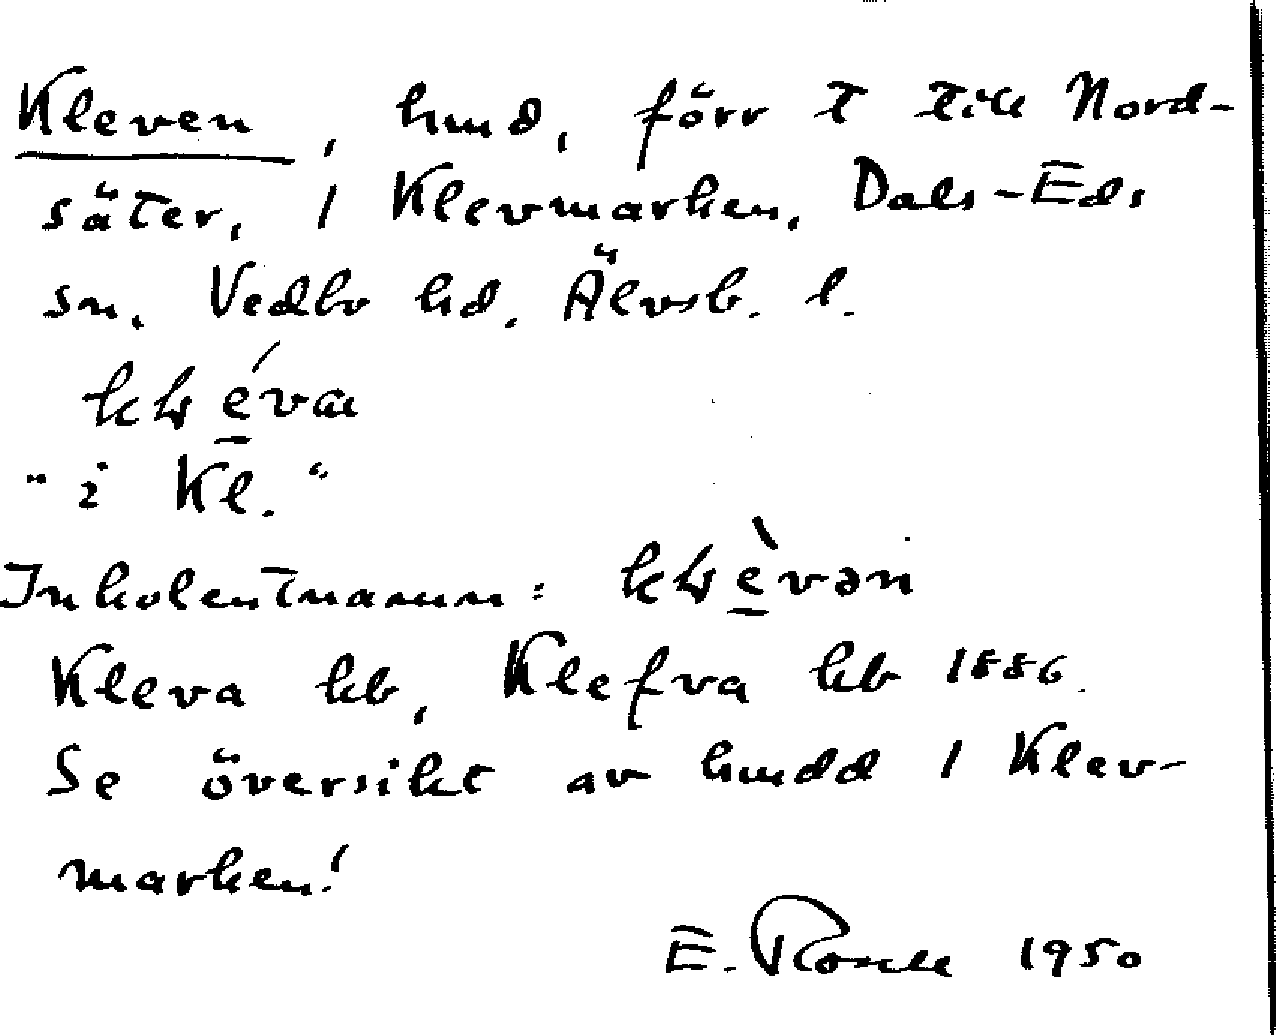 Kleven, hmd, förr t till Nord-
säter, i Klevmarken, Dals-Eds
sn, Vedbo hd. Älvsb. l.
éva
"i Kl."
Inkolentnamn:
Kleva kb, Klefva kb 1886.
Se översikt av hmdd i Klev-
marken!
E. 1950